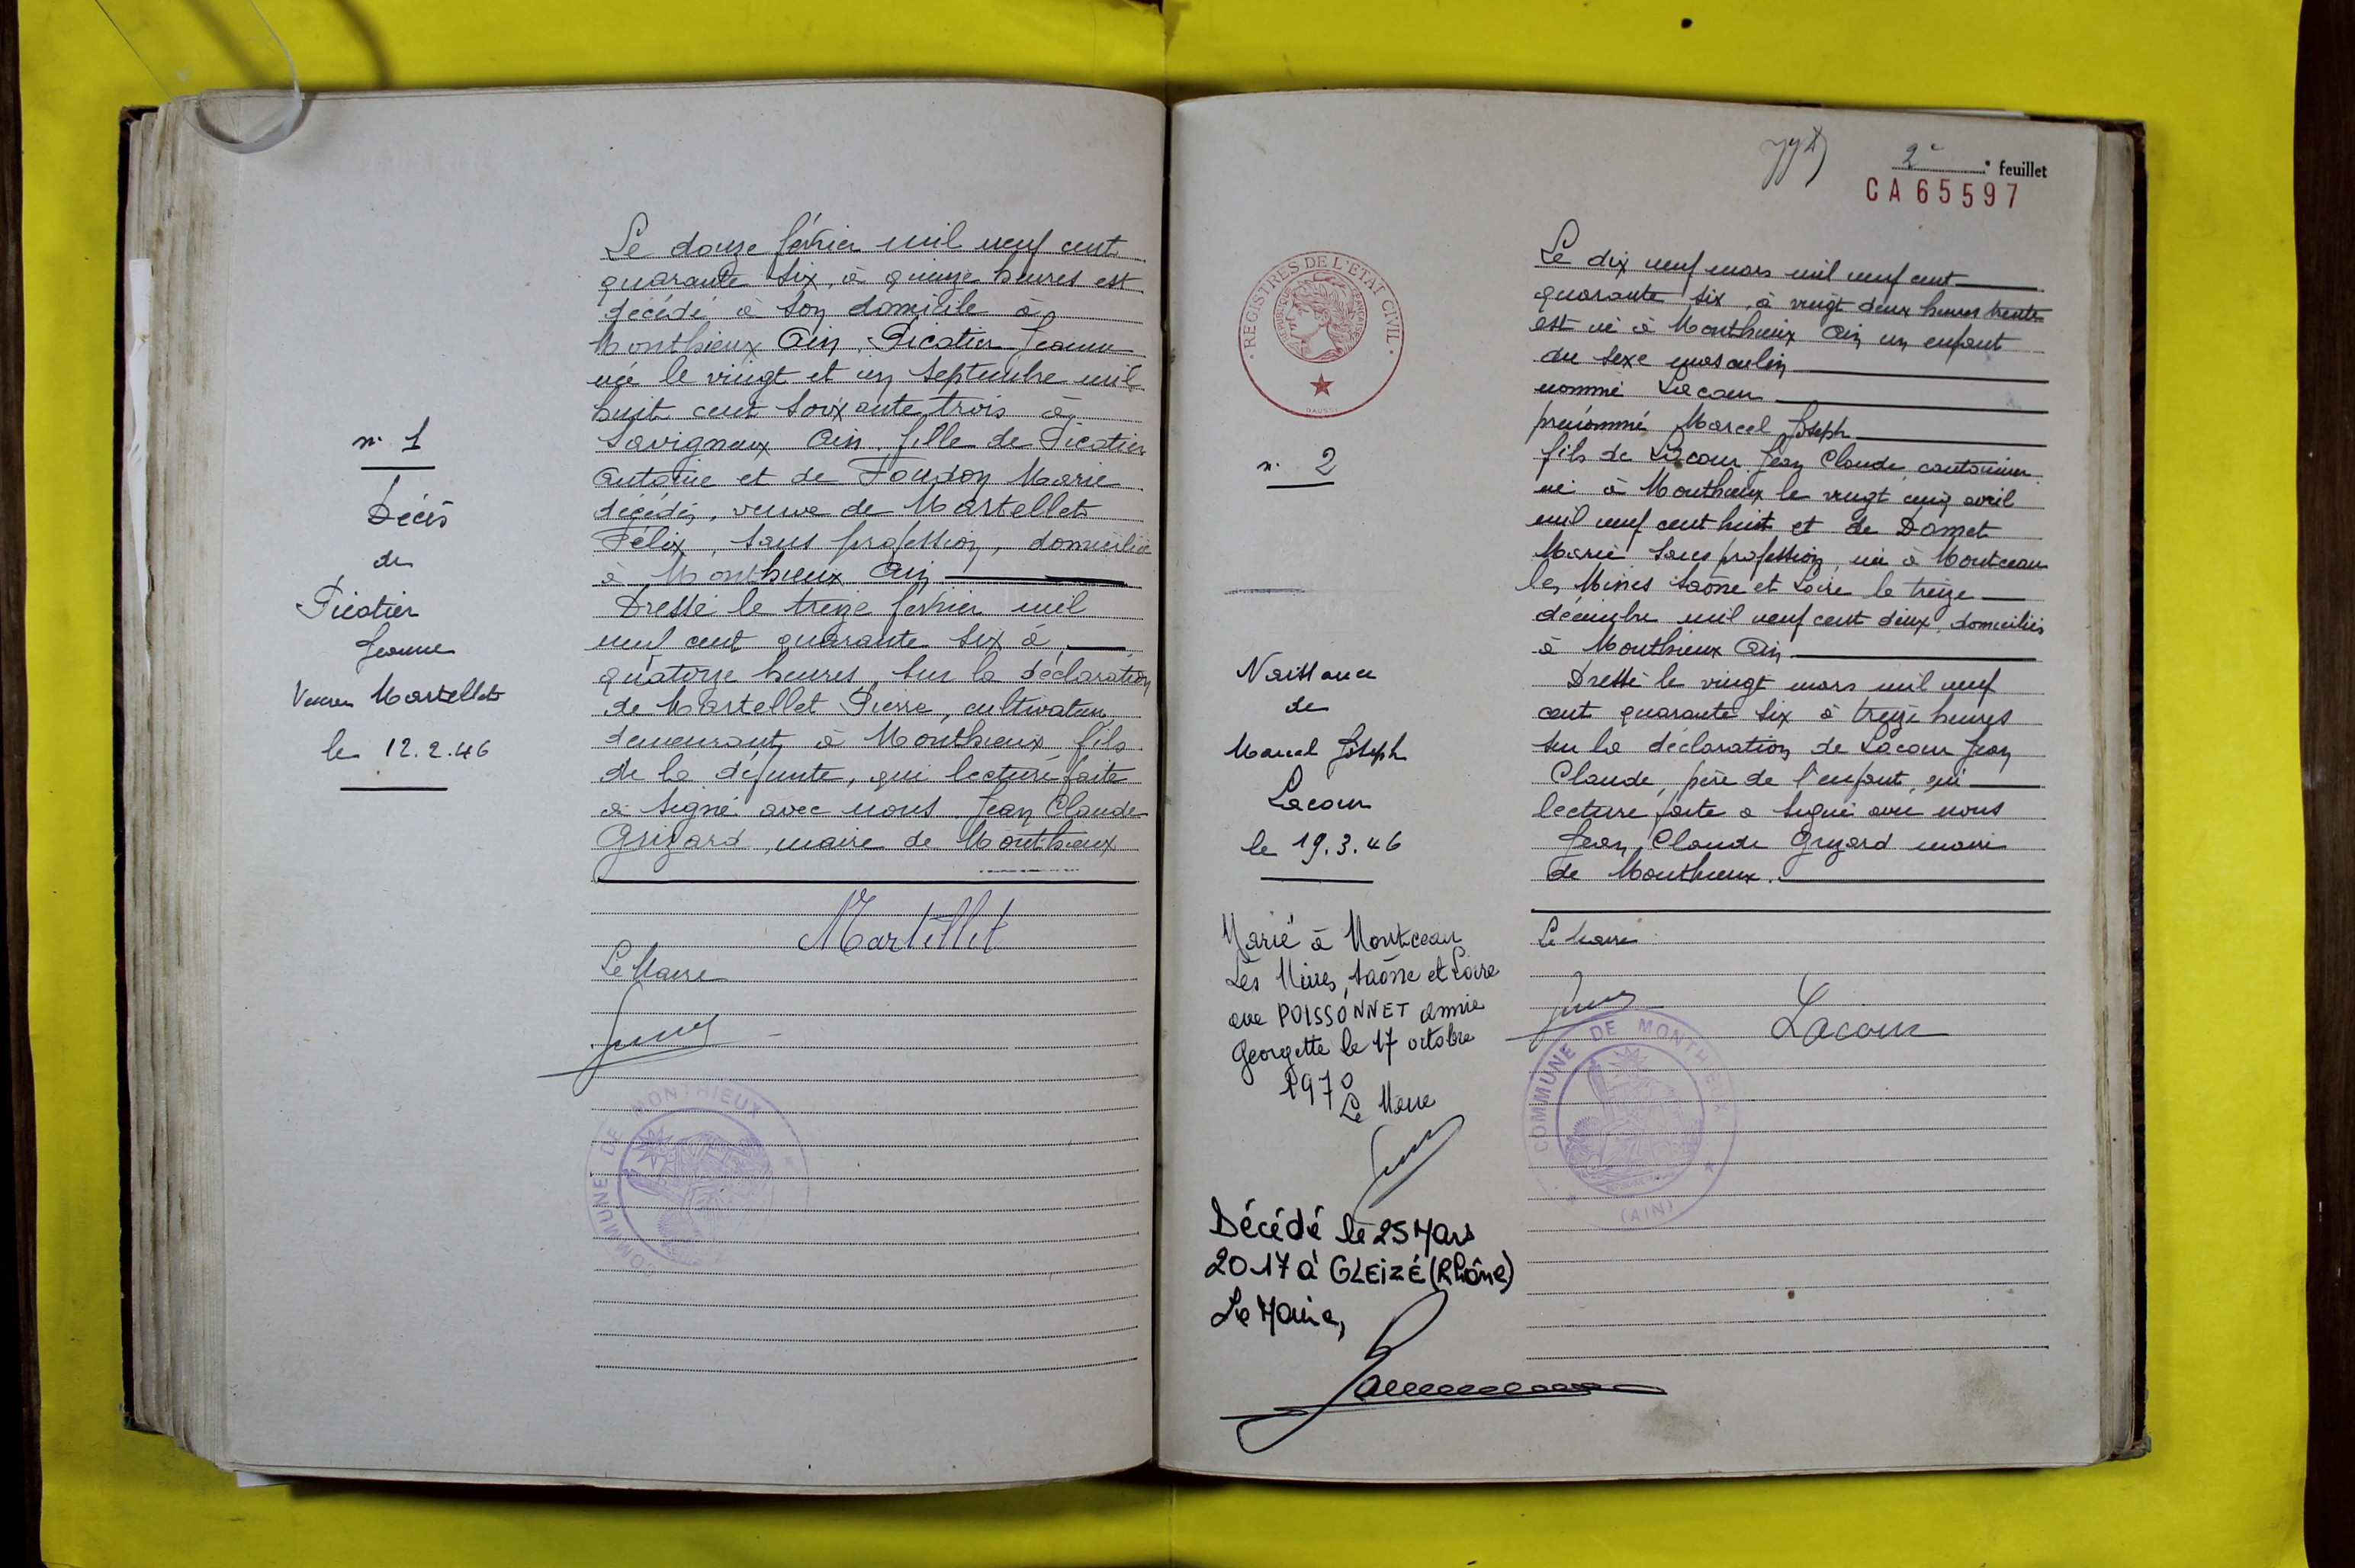 n° 1
Décès
de
Picatier
Jeanne
Veuve Martellet
le 12.2.46
Le douze février mil neuf cent
quarante six, à quinze heures est
décédé à son domicile à
Monthieux Ain, Picatier Jeanne
née le vingt et un septembre mil
huit cent soixante trois à
Savigneux Ain, fille de Picatier
Antoine et de Foudon Marie
décédés, veuve de Martellet
Félix, sans profession, domiciliée
à Monthieux Ain
Dressé le treize février mil
neuf cent quarante six à
quatorze heures, sur la déclaration
de Martellet Pierre, cultivateur
demeurant à Monthieux fils
de la défunte, qui lecture faite
a signé avec nous Jean Claude
Grizard, maire de Monthieux
Martellet
Le Maire
COMMUNE DE MONTHIEUX
2e feuillet
CA65597
REGISTRES DE L'ETAT CIVIL
n° 2
Naissance
de
Marcel Joseph
Lacour
le 19.3.46
Marié à Montceau
Les Mines, Saône et Loire
avec POISSONNET Annie
Georgette le 17 octobre
1970
Le Maire
Décédé le 25 Mars
2017 à GLEIZÉ (Rhône)
Le Maire,
Le dix neuf mars mil neuf cent
quarante six, à vingt deux heures trente
est né à Monthieux Ain un enfant
du sexe masculin
nommé Lacour
prénommé Marcel Joseph
fils de Lacour Jean Claude, cantonnier
né à Monthieux le vingt cinq avril
mil neuf cent huit et de Damet
Marie sans profession, née à Montceau
les Mines Saône et Loire le treize
décembre mil neuf cent deux, domiciliés
à Monthieux Ain
Dressé le vingt mars mil neuf
cent quarante six à treize heures
sur la déclaration de Lacour Jean
Claude, père de l'enfant, qui
lecture faite a signé avec nous
Jean Claude Grizard maire
de Monthieux.
Le Maire
Lacour
COMMUNE DE MONTHIEUX
(AIN)